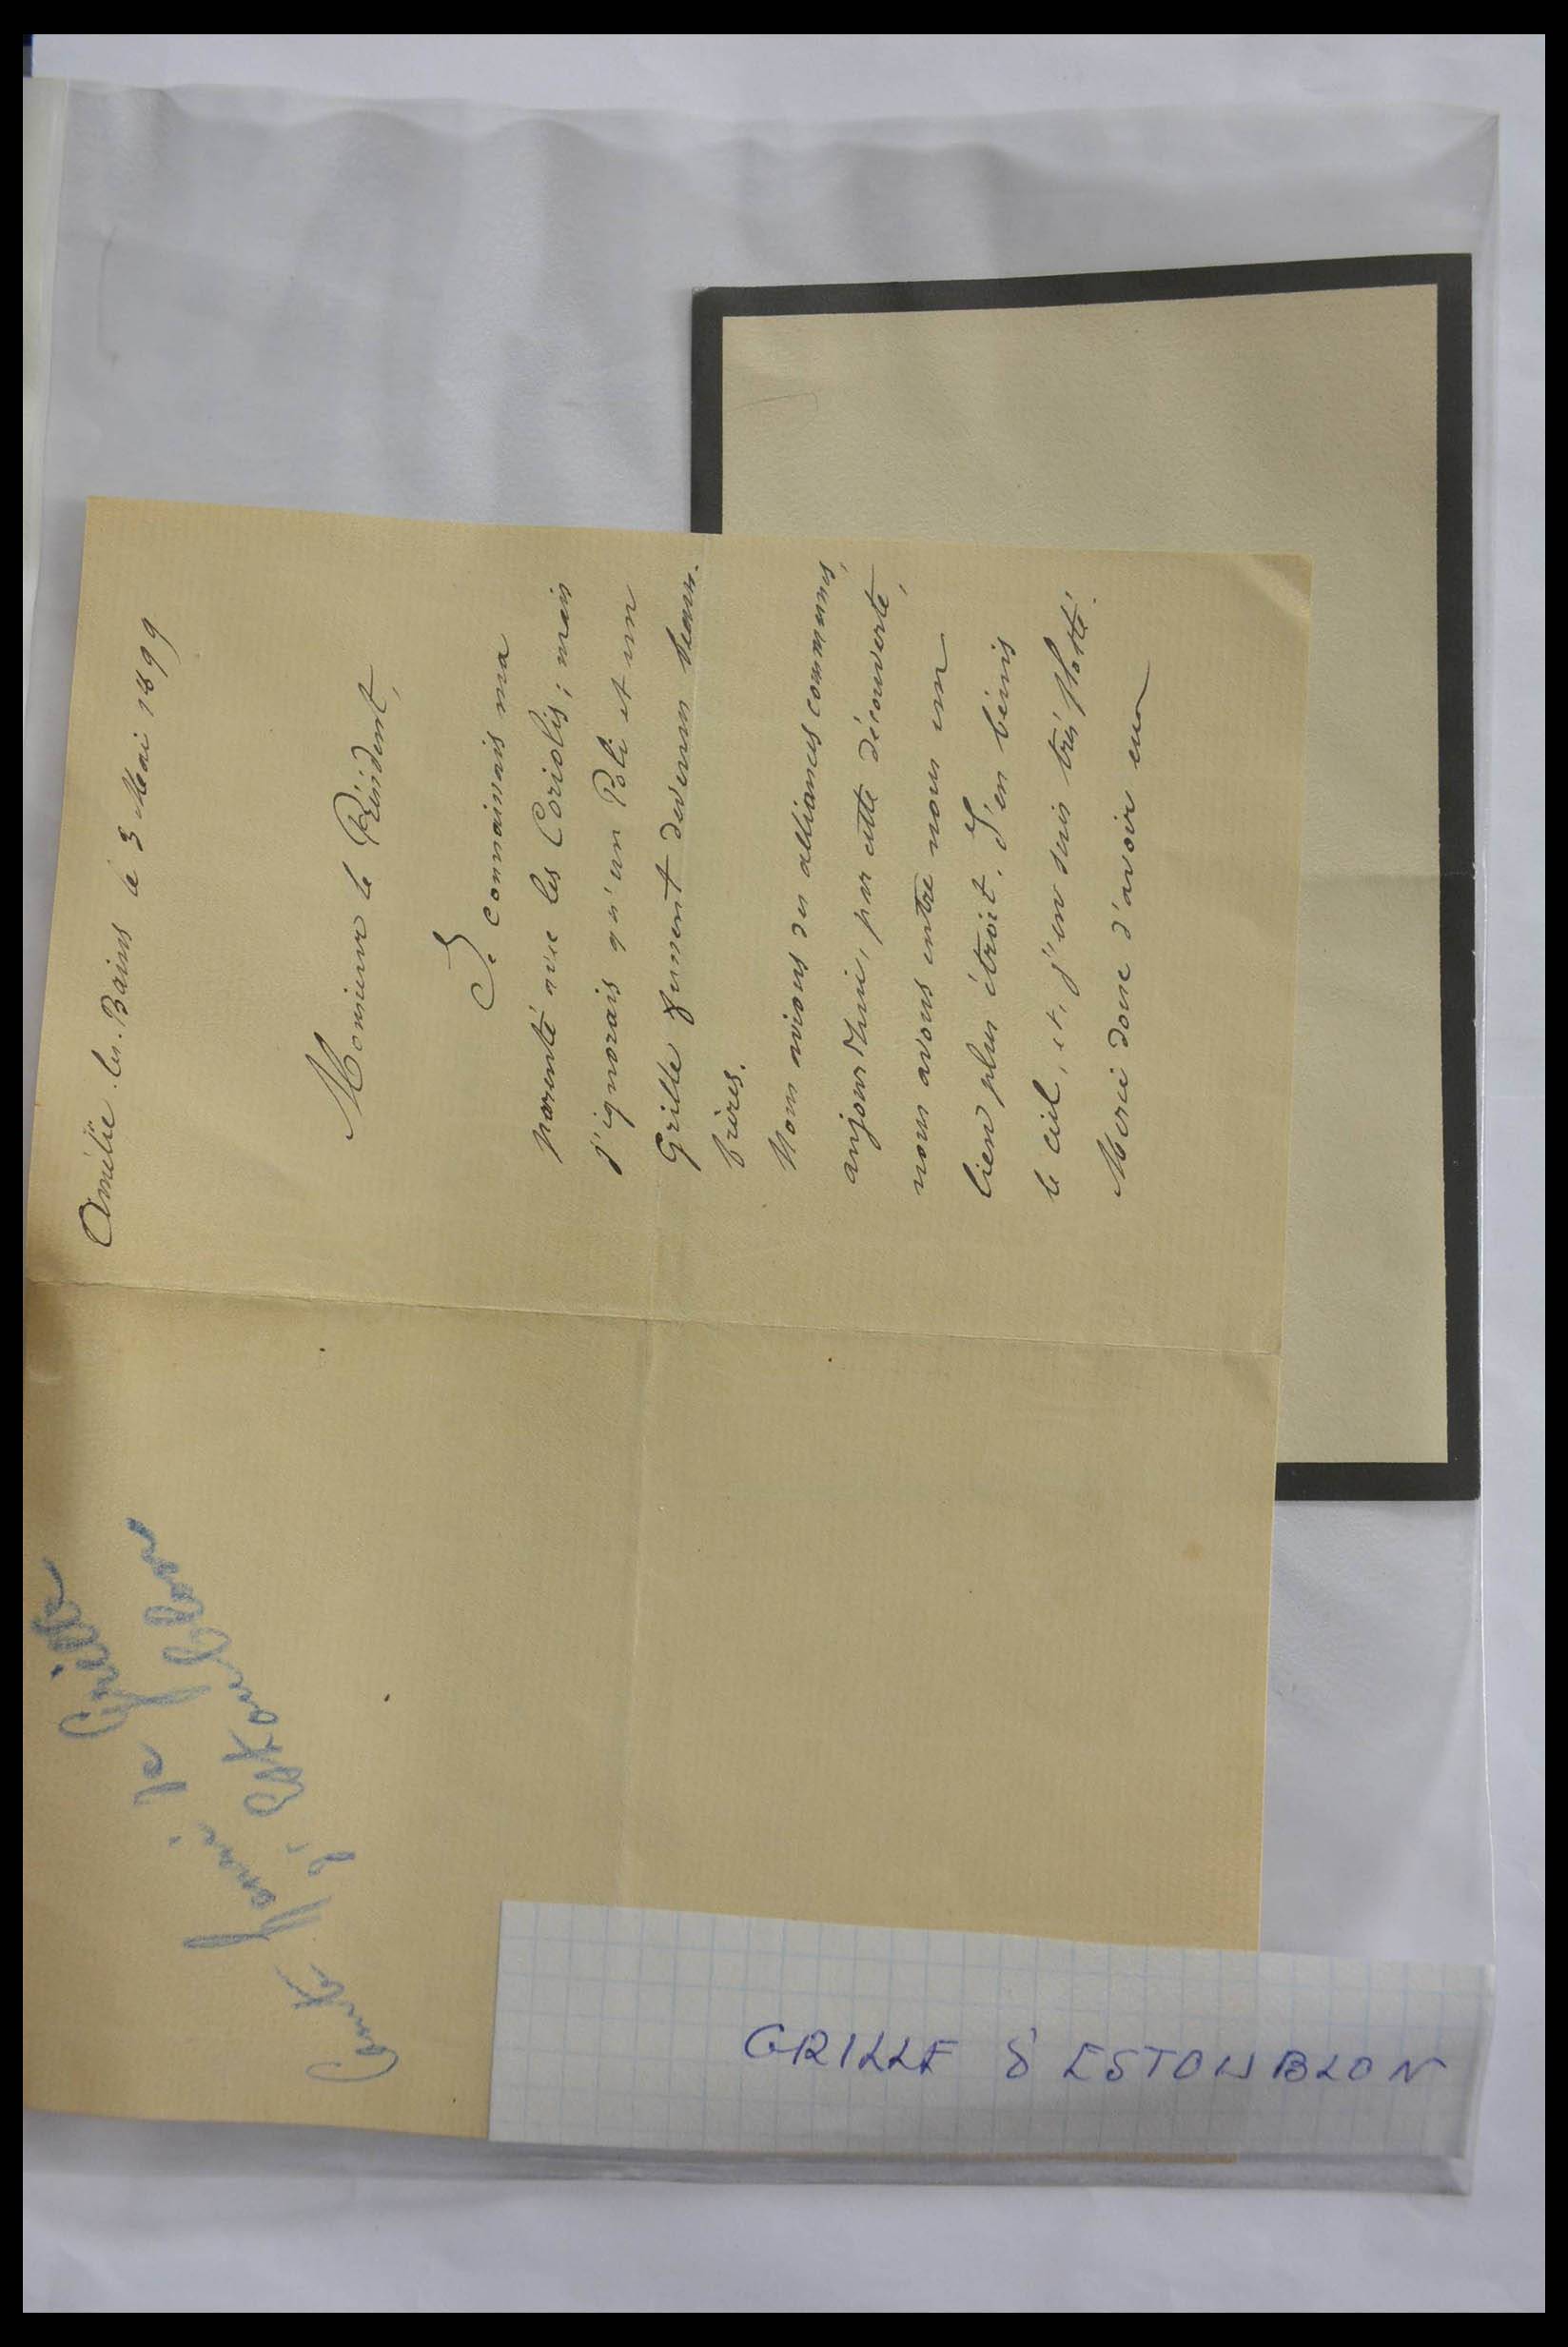 Amélie-les-Bains le 3 Mai 1899
Monsieur le Président,
Je connaissais ma
parenté avec les Coriolis; mais
j'ignorais qu'un Poli et un
Grille fussent devenus beaux-
frères.
Nous avions des alliances communes,
aujourd'hui, par cette découverte,
nous avons entre nous un
lien plus étroit. J'en bénis
le ciel, et, j'en suis très flatté.
Merci donc d'avoir eu
Grille
Comte
de
d'Estoublon
GRILLE d'ESTOUBLON